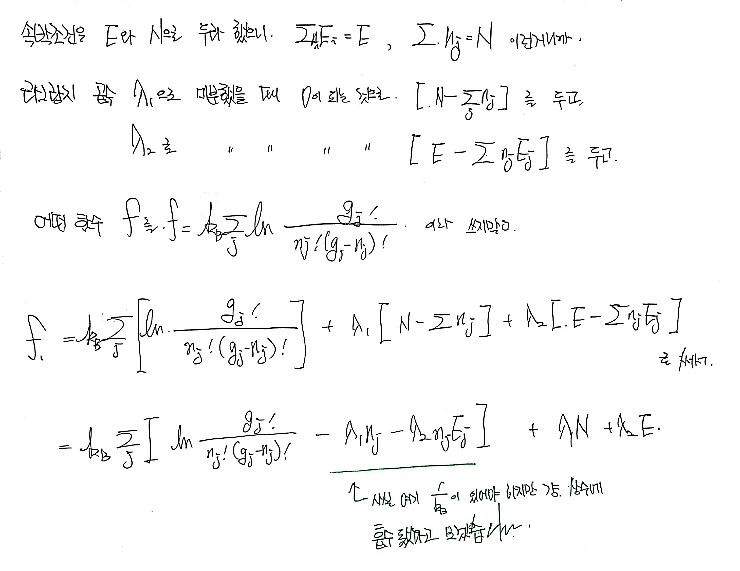 속박조건을 E와 N으로 두라 했으니. Σn_jE_j = E , Σn_j = N 이런거니까.
라그랑지 곱수 λ₁으로 미분했을 때 0이 되는 것으로 [N-Σ_j n_j] 를 두고
λ₂로 〃 〃 〃 〃 [E - Σn_jE_j] 를 두고.
어떤 함수 f를. f = k_B Σ_j ln g_j! / n_j!(g_j-n_j)! 이라 쓰지말고
f₁ = k_B Σ_j [ln g_j! / n_j!(g_j-n_j)!] + λ₁[N-Σn_j] + λ₂[E-Σn_jE_j]
로 써서.
= k_B Σ_j [ln g_j! / n_j!(g_j-n_j)! - λ₁n_j - λ₂n_jE_j] + λ₁N + λ₂E.
↑ 사실 여기 1/k_B 이 있어야 하지만 걍 상수에
흡수 됐다고